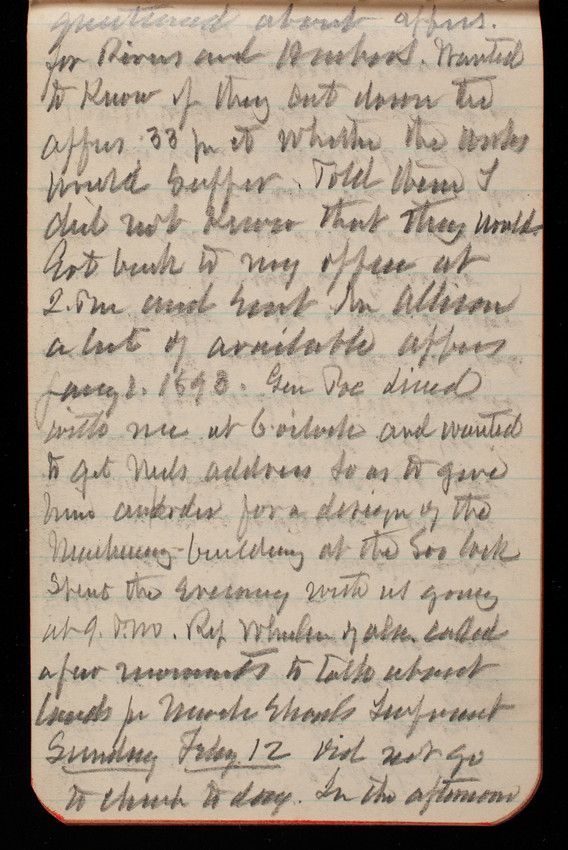 questioned about apprs.
for Rivers and Harbors. Wanted
to Know if they cut down the
apprs 33 pr ct whether the works
would suffer. Told them I
did not know that they would
Got back to my office at
2. Pm and sent Mr Allison
a list of available apprs
1893. Gen Poe dined
with me at 6 oclock and wanted
to get address so as to give
him an order for a design of the
Machinery building at the Soo lock
Spent the evening with us going
at 9. P.M. Rep Wheeler of Ala. called
a few moments to talk about
lands pr Muscle Shoals Improvmt
Sunday Feby 12 Did not go
to church to day. In the afternoon